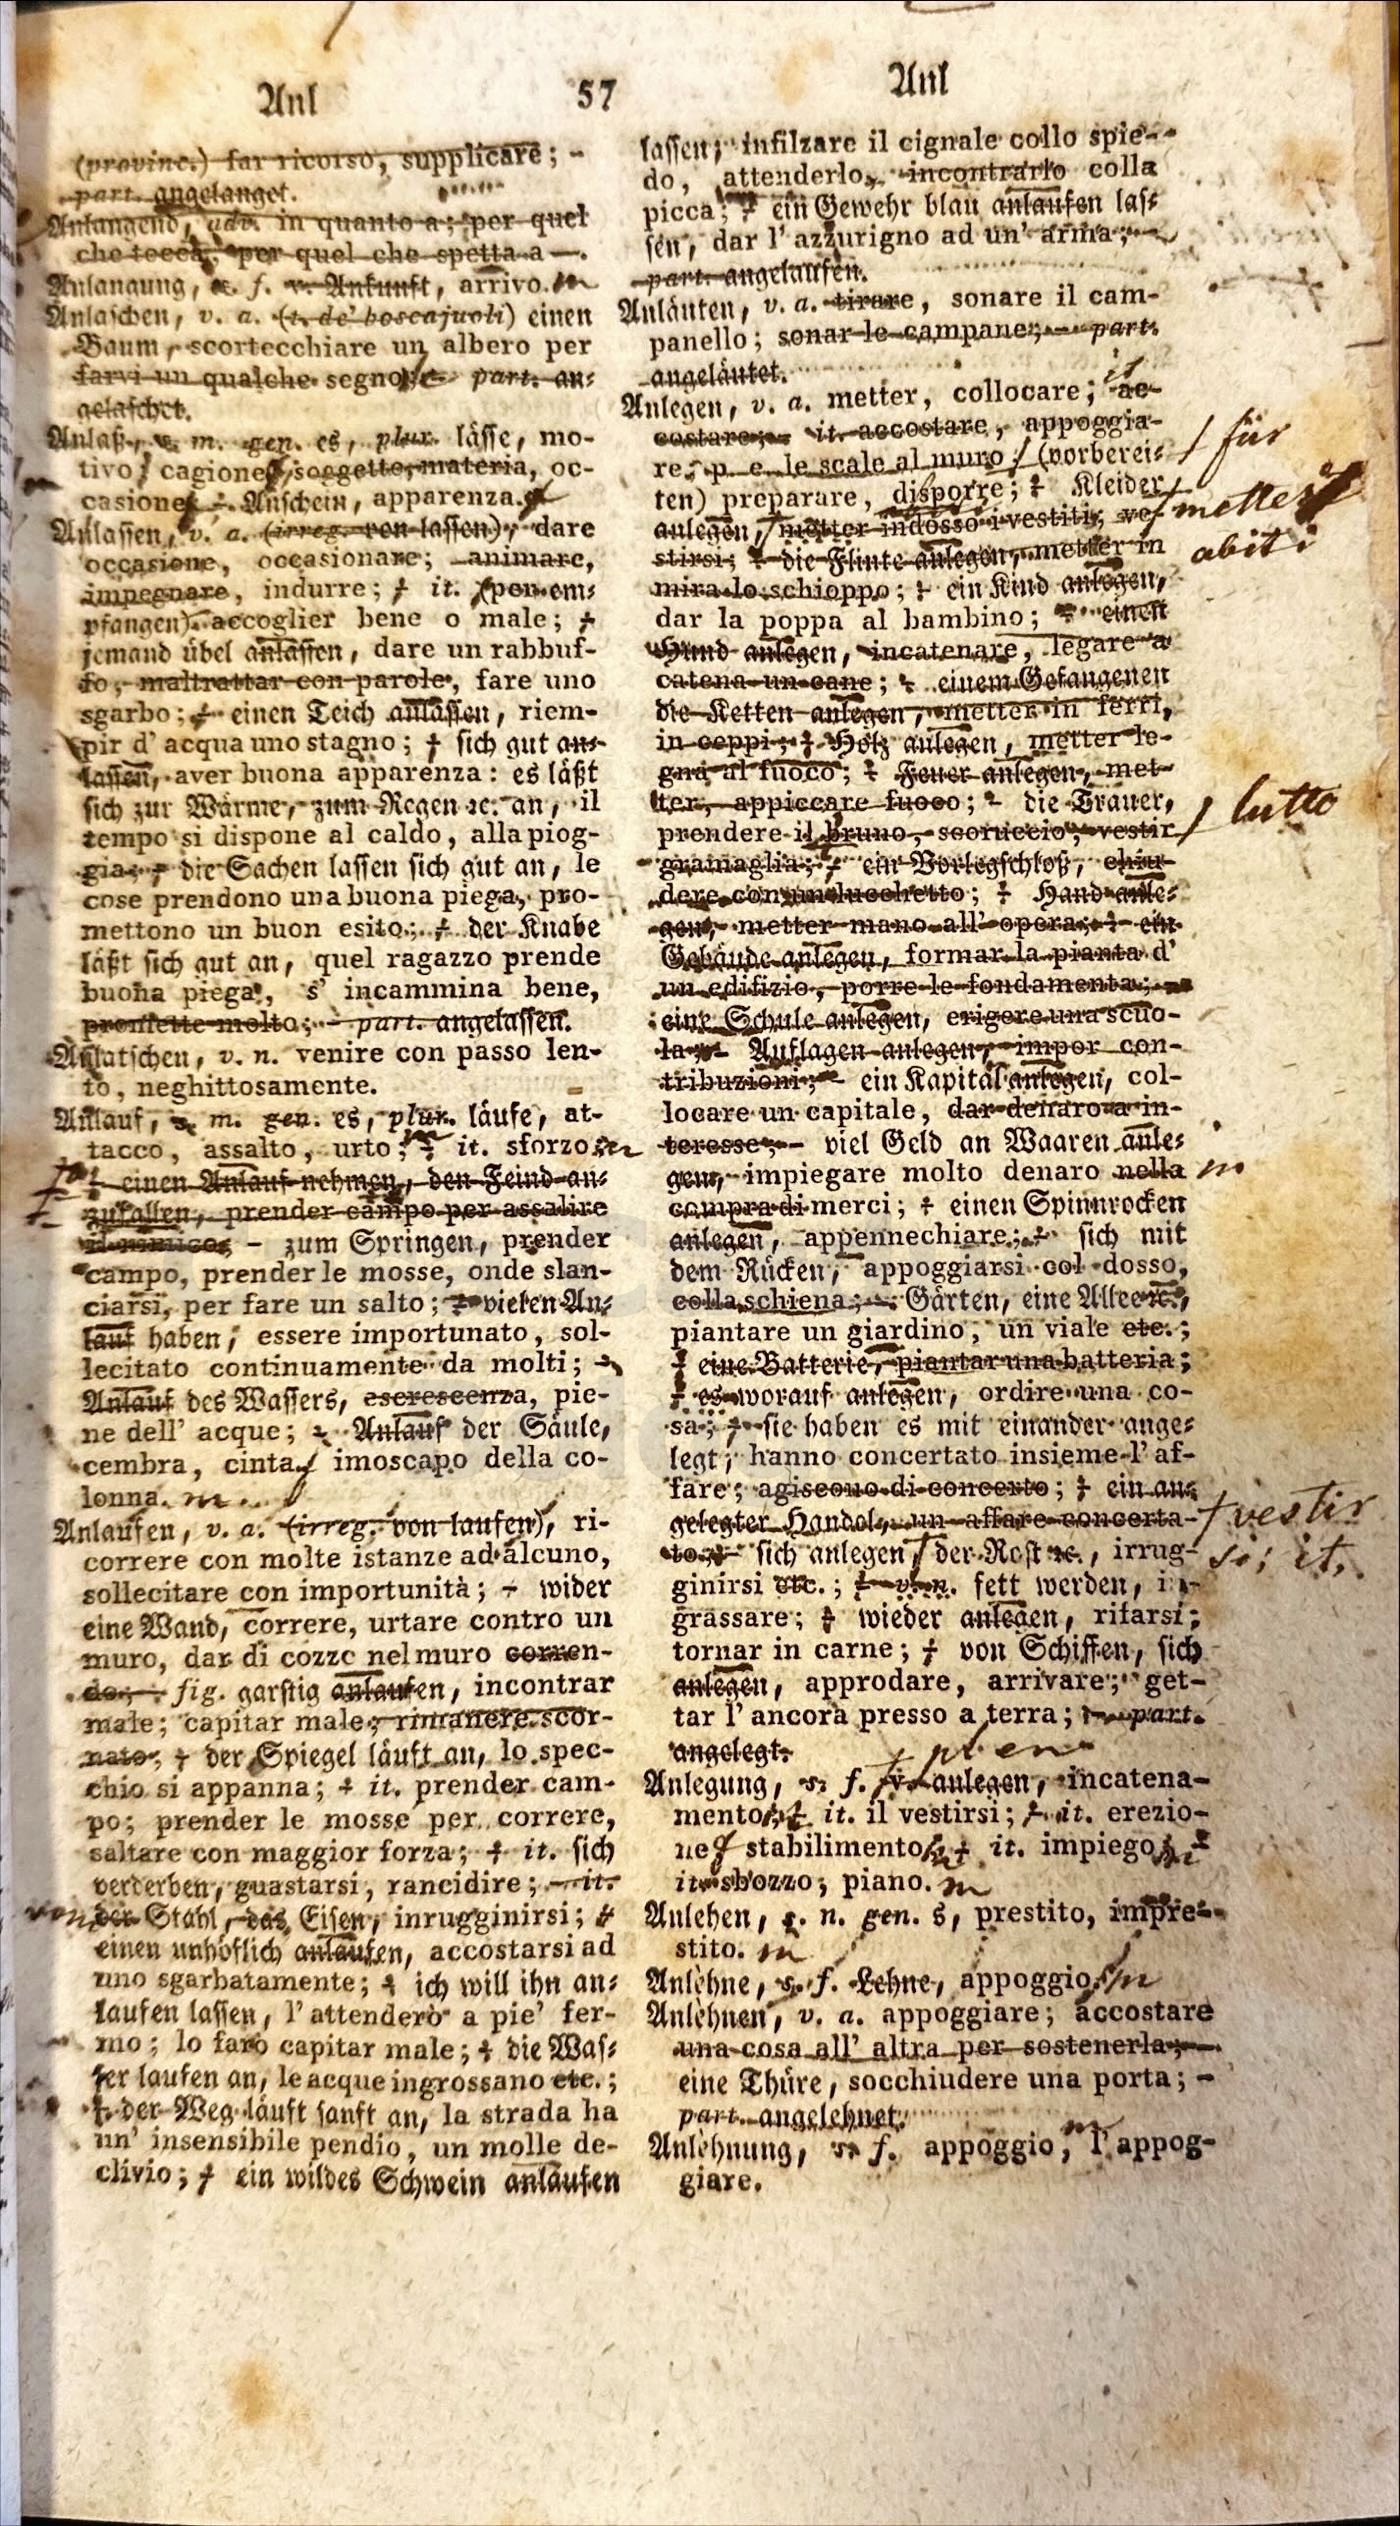 Anl 57 Anl
(provinc.) far ricorso, supplicare; -
part. angelanget.
Anlangend, adv. in quanto a; per quel
che tocca, per quel che spetta a —.
Anlangung, s. f. v. Ankunft, arrivo. m
Anlaschen, v. a. (t. de' boscajuoli) einen
Baum, scortecchiare un albero per
farvi un qualche segno; part. an-
gelaschet.
Anlaß, s. m. gen. es, plur. lässe, mo-
tivo, cagione, soggetto, materia, oc-
casione; - Anschein, apparenza. f
Anlassen, v. a. (irreg. von lassen), dare
occasione, occasionare; animare,
impegnare, indurre; + it. (von em-
pfangen) accoglier bene o male; +
jemand übel anlassen, dare un rabbuf-
fo, maltrattar con parole, fare uno
sgarbo; + einen Teich anlassen, riem-
pir d' acqua uno stagno; + sich gut an-
lassen, aver buona apparenza: es läßt
sich zur Wärme, zum Regen ꝛc. an, il
tempo si dispone al caldo, alla piog-
gia; + die Sachen lassen sich gut an, le
cose prendono una buona piega, pro-
mettono un buon esito; + der Knabe
läßt sich gut an, quel ragazzo prende
buona piega, s' incammina bene,
promette molto; - part. angelassen.
Anlatschen, v. n. venire con passo len-
to, neghittosamente.
Anlauf, s. m. gen. es, plur. läufe, at-
tacco, assalto, urto; + it. sforzo m
+ einen Anlauf nehmen, den Feind an-
zufallen, prender campo per assalire
il nimico; - zum Springen, prender
campo, prender le mosse, onde slan-
ciarsi, per fare un salto; + vielen An-
lauf haben, essere importunato, sol-
lecitato continuamente da molti; -
Anlauf des Wassers, escrescenza, pie-
ne dell' acque; - Anlauf der Säule,
cembra, cinta, imoscapo della co-
lonna. m
Anlaufen, v. a. (irreg. von laufen), ri-
correre con molte istanze ad alcuno,
sollecitare con importunità; - wider
eine Wand, correre, urtare contro un
muro, dar di cozzo nel muro corren-
do; - fig. garstig anlaufen, incontrar
male; capitar male; rimanere scor-
nato; + der Spiegel läuft an, lo spec-
chio si appanna; + it. prender cam-
po; prender le mosse per correre,
saltare con maggior forza; + it. sich
verderben, guastarsi, rancidire; - it.
von der Stahl, das Eisen, inrugginirsi; +
einen unhöflich anlaufen, accostarsi ad
uno sgarbatamente; + ich will ihn an-
laufen lassen, l' attenderò a pie' fer-
mo; lo farò capitar male; + die Was-
ser laufen an, le acque ingrossano etc.;
+ der Weg läuft sanft an, la strada ha
un' insensibile pendio, un molle de-
clivio; + ein wildes Schwein anlaufen
lassen; infilzare il cignale collo spie-
do, attenderlo, incontrarlo colla
picca; + ein Gewehr blau anlaufen las-
sen, dar l' azzurigno ad un' arma; -
part. angelaufen.
Anläuten, v. a. tirare, sonare il cam-
panello; sonar le campane; - part.
angeläutet.
Anlegen, v. a. metter, collocare; it ac-
costare; - it. accostare, appoggia-
re, p. e. le scale al muro; (vorberei- / für
ten) preparare, disporre; + Kleider
anlegen, metter indosso i vestiti, ve- + metter
stirsi; + die Flinte anlegen, metter in abiti
mira lo schioppo; + ein Kind anlegen,
dar la poppa al bambino; + einen
Hund anlegen, incatenare, legare a
catena un cane; + einem Gefangenen
die Ketten anlegen, metter in ferri,
in ceppi; + Holz anlegen, metter le-
gna al fuoco; + Feuer anlegen, met-
ter, appiccare fuoco; - die Trauer,
prendere il bruno, scoruccio, vestir / lutto
gramaglia; + ein Vorlegschloß, chiu-
dere con un lucchetto; + Hand anle-
gen, metter mano all' opera; + ein
Gebäude anlegen, formar la pianta d'
un edifizio, porre le fondamenta; -
eine Schule anlegen, erigere una scuo-
la; - Auflagen anlegen, impor con-
tribuzioni; - ein Kapital anlegen, col-
locare un capitale, dar denaro a in-
teresse; - viel Geld an Waaren anle-
gen, impiegare molto denaro nella m
compra di merci; + einen Spinnrocken
anlegen, appennechiare; + sich mit
dem Rücken, appoggiarsi col dosso,
colla schiena; - Gärten, eine Allee ꝛc.,
piantare un giardino, un viale etc.;
+ eine Batterie, piantar una batteria;
+ es worauf anlegen, ordire una co-
sa; + sie haben es mit einander ange-
legt, hanno concertato insieme l' af-
fare; agiscono di concerto; + ein an-
gelegter Handel, un affare concerta- + vestir
to; - sich anlegen, der Rost ꝛc., irrug- si; it.
ginirsi etc.; + v. n. fett werden, in-
grassare; + wieder anlegen, rifarsi;
tornar in carne; + von Schiffen, sich
anlegen, approdare, arrivare; get-
tar l' ancora presso a terra; - part.
angelegt.
Anlegung, s. f. v. anlegen, incatena-
mento, + it. il vestirsi; + it. erezio-
ne, stabilimento, + it. impiego, +
it. sbozzo; piano. m
Anlehen, s. n. gen. s, prestito, impre-
stito. m
Anlehne, s. f. Lehne, appoggio, m
Anlehnen, v. a. appoggiare; accostare
una cosa all' altra per sostenerla; -
eine Thüre, socchiudere una porta; -
part. angelehnet.
Anlehnung, s. f. appoggio, m l' appog-
giare.